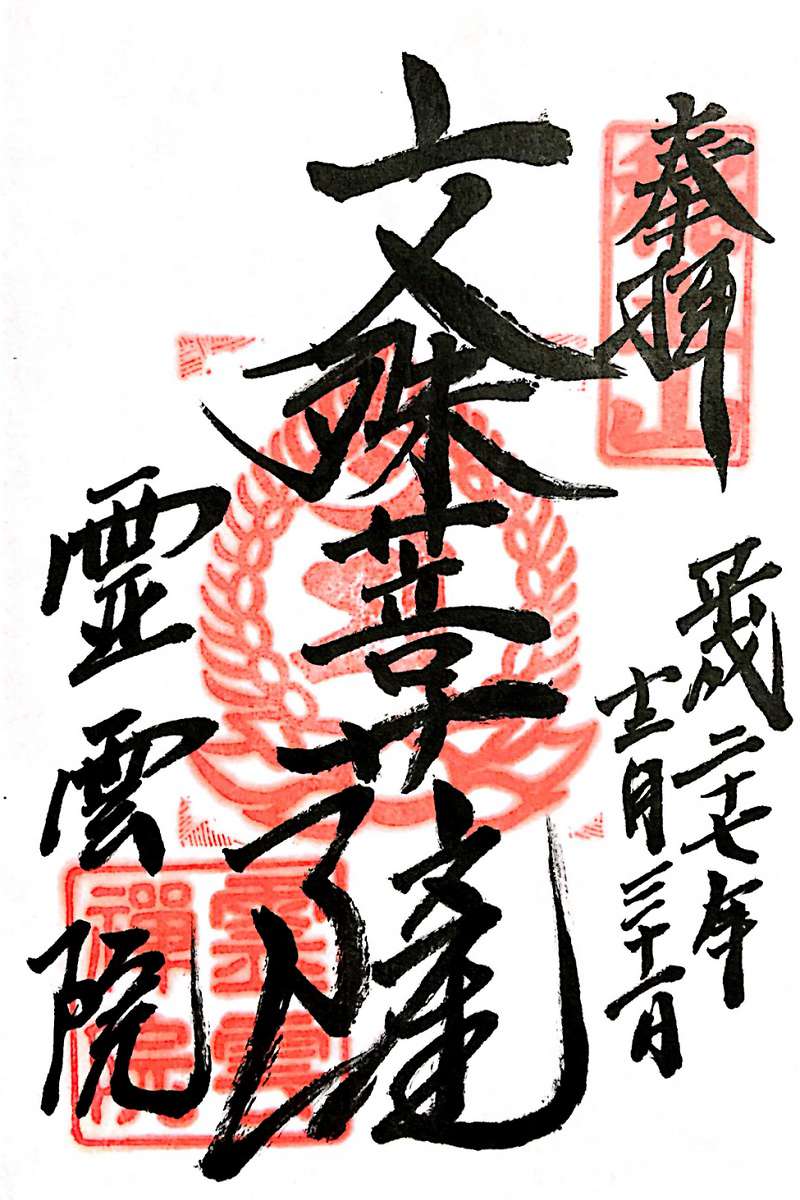 奉拝
平成二十七年
十二月三十一日
文殊菩薩
霊雲院
霊雲
禅院